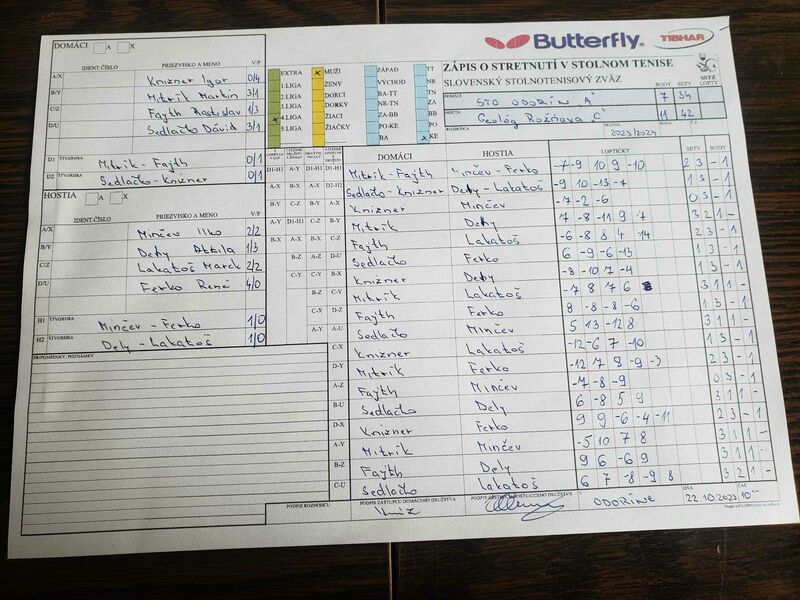 Butterfly
TIBHAR
DOMÁCI A X
IDENT.ČÍSLO PRIEZVISKO A MENO V/P
A/X Knižner Igor 0/4
B/Y Mitrík Martin 3/1
C/Z Fajth Rastislav 1/3
D/U Sedlačko Dávid 3/1
D1 ŠTVORHRA Mitrík - Fajth 0/1
D2 ŠTVORHRA Sedlačko - Knižner 0/1
HOSTIA A X
IDENT.ČÍSLO PRIEZVISKO A MENO V/P
A/X Minčev Ilko 2/2
B/Y Dely Attila 1/3
C/Z Lakatoš Marek 2/2
D/U Ferko René 4/0
H1 ŠTVORHRA Minčev - Ferko 1/0
H2 ŠTVORHRA Dely - Lakatoš 1/0
PRIPOMIENKY, POZNÁMKY
EXTRA x MUŽI ZÁPAD TT
1.LIGA ŽENY VÝCHOD NR
2.LIGA DORCI BA-TT TN
3.LIGA DORKY NR-TN ZA
x 4.LIGA ŽIACI ZA-BB BB
5.LIGA ŽIAČKY PO-KE PO
BA x KE
ZÁPIS O STRETNUTÍ V STOLNOM TENISE
SLOVENSKÝ STOLNOTENISOVÝ ZVÄZ
SSTZ
BODY SETY LOPTY
DOMÁCI STO ODORÍN "A" 7 34
HOSTIA Geológ Rožňava "C" 11 42
ROZHODCA SEZÓNA 2023/2024
DOMÁCI HOSTIA LOPTIČKY SETY BODY
Mitrík - Fajth Minčev - Ferko -7 -9 10 9 -10 2 3 - 1
Sedlačko - Knižner Dely - Lakatoš -9 10 -13 -7 1 3 - 1
Knižner Minčev -17 -2 -6 0 3 - 1
Mitrík Dely 7 -8 -11 9 7 3 2 1 -
Fajth Lakatoš -6 -8 8 4 -14 2 3 - 1
Sedlačko Ferko 6 -9 -6 -13 1 3 - 1
Knižner Dely -8 -10 7 -4 1 3 - 1
Mitrík Lakatoš -7 8 7 6 3 1 1 -
Fajth Ferko 8 -8 -8 -6 1 3 - 1
Sedlačko Minčev 5 13 -12 8 3 1 1 -
Knižner Lakatoš -12 -6 7 -10 1 3 - 1
Mitrík Ferko -12 7 8 -9 -3 2 3 - 1
Fajth Minčev -7 -8 -9 0 3 - 1
Sedlačko Dely 6 -8 5 9 3 1 1 -
Knižner Ferko 9 9 -6 -4 -11 2 3 - 1
Mitrík Minčev -5 10 7 8 3 1 1 -
Fajth Dely 9 6 -6 9 3 1 1 -
Sedlačko Lakatoš 6 7 -8 -9 8 3 2 1 -
PODPIS ROZHODCU PODPIS ZÁSTUPCU DOMÁCEHO DRUŽSTVA
ODORÍNE DŇA 22.10.2023 ČAS 10⁰⁰